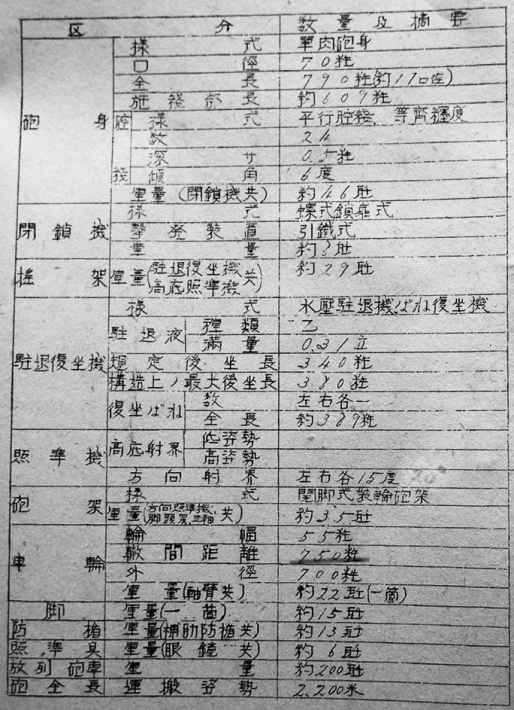 区分 数量及摘要
砲身 様式 単肉砲身
口径 70粍
全長 790粍(約11口径)
施綫部長 約607粍
腔綫 様式 平行腔綫、等斉纏度
数 24
深サ 0.5粍
傾角 6度
重量(閉鎖機共) 約46瓩
閉鎖機 様式 螺式鎖扉式
撃発装置 引鉄式
重量 約8瓩
揺架 重量(駐退復坐機高低照準機共) 約29瓩
駐退復坐機 様式 水圧駐退機ばね復坐機
駐退液 種類 乙
満量 0.31立
規定後坐長 340粍
構造上ノ最大後坐長 380粍
復坐ばね 数 左右各一
全長 約389粍
照準機 高低射界 低姿勢
高姿勢
方向射界 左右各15度
砲架 様式 開脚式架輪砲架
重量(方向照準機、脚頭架、共) 約35瓩
車輪 輪幅 55粍
轍間距離 750粍
外径 700粍
重量(軸臂共) 約22瓩(一箇)
脚 重量(一箇) 約15瓩
防楯 重量(補助防楯共) 約13瓩
照準具 重量(眼鏡共) 約6瓩
放列砲車 重量 約200瓩
砲全長 運搬姿勢 2.200米